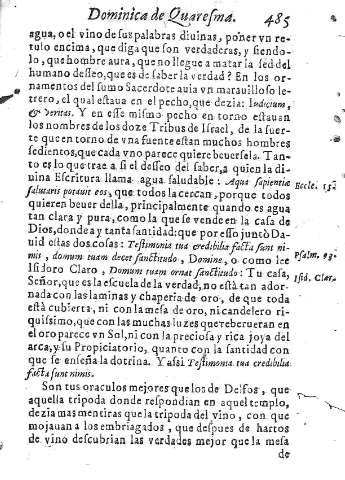 Dominica de Quaresma. 485
agua, o el vino de sus palabras diuinas, poner vn re-
tulo encima, que diga que son verdaderas, y siendo-
lo, que hombre aura, que no llegue a matar la sed del
humano desseo, que es de saber la verdad? En los or-
namentos del sumo Sacerdote auia vn marauilloso le-
trero, el qual estaua en el pecho, que dezia: Iudicium,
& veritas. Y en esse mismo pecho en torno estauan
los nombres de los doze Tribus de Israel, de la suer-
te que en torno de vna fuente estan muchos hombres
sedientos, que cada vno parece quiere beuersela. Tan-
to es lo que trae a si el desseo del saber, a quien la di-
uina Escritura llama agua saludable: Aqua sapientiæ
Eccle. 15.
salutaris potauit eos, que todos la cercan, porque todos
quieren beuer della, principalmente quando es agua
tan clara y pura, como la que se vende en la casa de
Dios, donde ay tanta santidad: que por esso juntò Da-
uid estas dos cosas: Testimonia tua credibilia facta sunt ni-
mis, domum tuam decet sanctitudo, Domine, o como lee
Psalm. 93.
Isidoro Claro, Domum tuam ornat sanctitudo: Tu casa,
Isid. Clar.
Señor, que es la escuela de la verdad, no està tan ador-
nada con las laminas y chaperia de oro, de que toda
està cubierta, ni con la mesa de oro, ni candelero ri-
quissimo, que con las muchas luzes que reberueran en
el oro parece vn Sol, ni con la preciosa y rica joya del
arca, y su Propiciatorio, quanto con la santidad con
que se enseña la dotrina. Y assi Testimonia tua credibilia
facta sunt nimis.
Son tus oraculos mejores que los de Delfos, que
aquella tripoda donde respondian en aquel templo,
dezia mas mentiras que la tripoda del vino, con que
mojauan a los embriagados, que despues de hartos
de vino descubrian las verdades mejor que la mesa
de